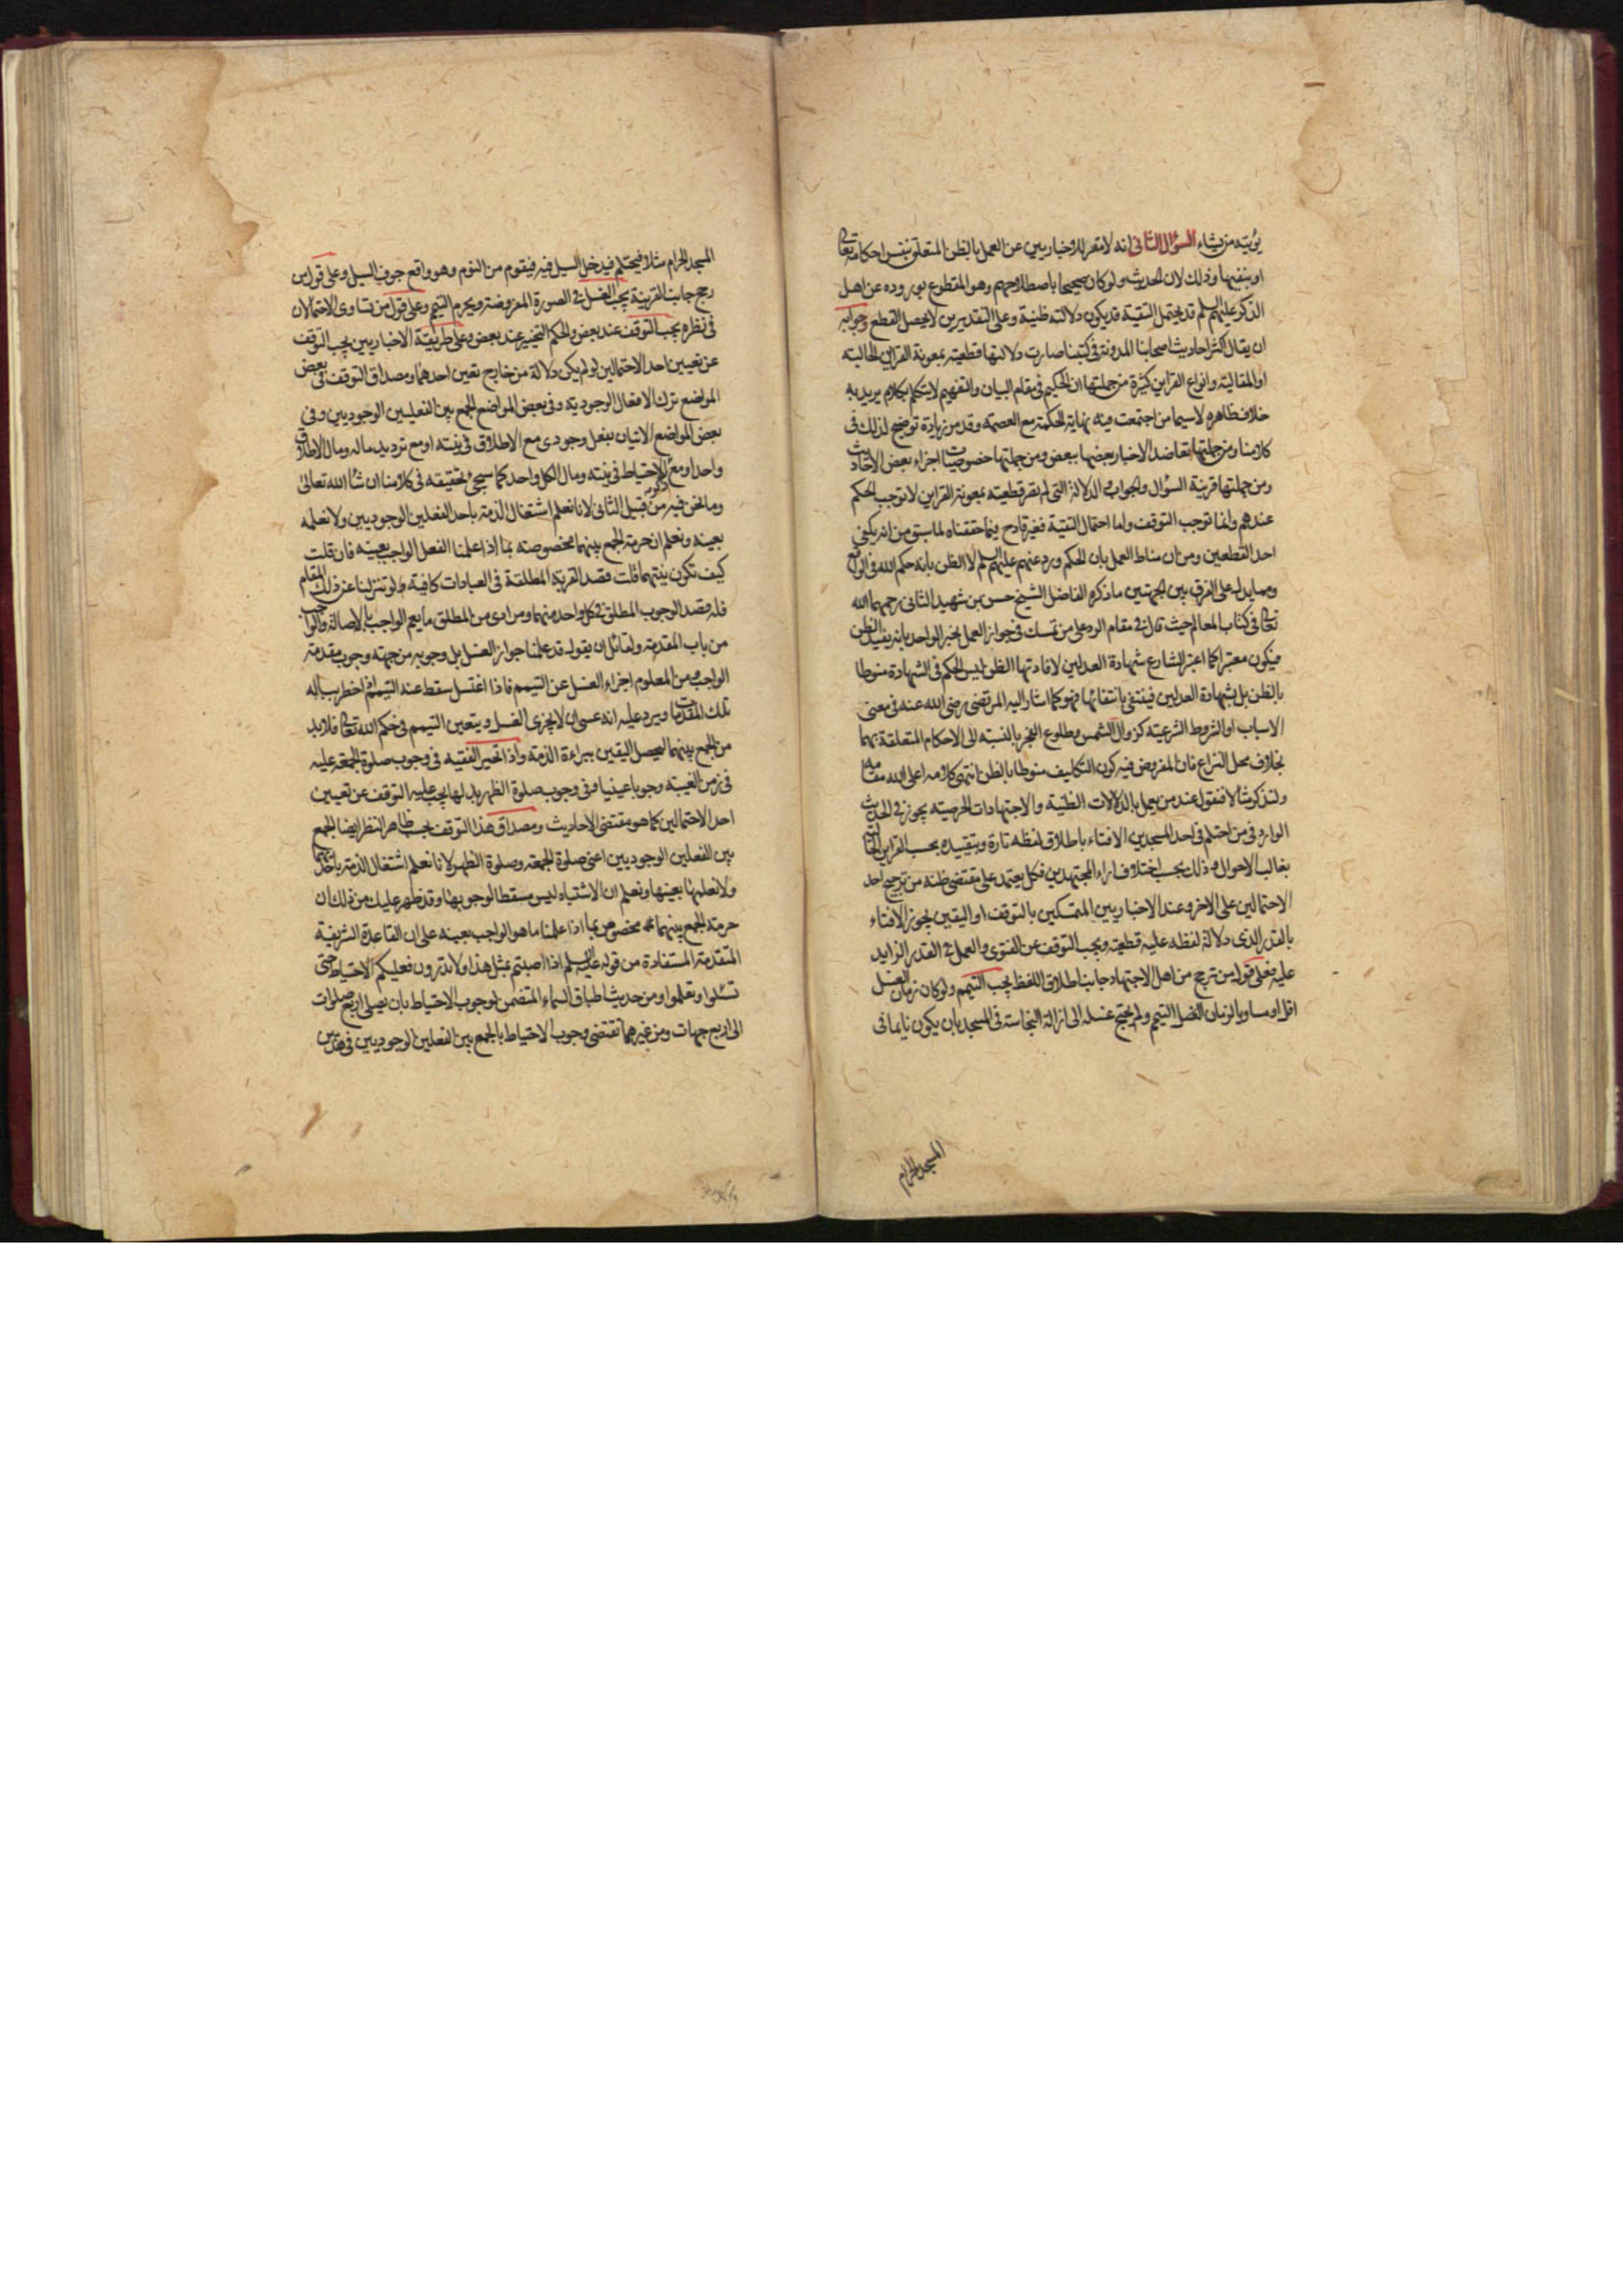 يؤتيه من يشاء السؤال الثاني انه لا مفر للاخباريين عن العمل بالظن المتعلق بنفس احكامه تعالى
او بنفيها وذلك لان الحديث ولو كان صحيحا باصطلاحهم وهو المقطوع بوروده عن اهل
الذكر عليهم السلم قد يحتمل التقية قد يكون دلالته ظنية وعلى التقديرين لا يحصل القطع وجوابه
ان يقال اكثر احاديث اصحابنا المدونة في كتبنا صارت دلالتها قطعية بمعونة القراين الحالية
او المقالية وانواع القراين كثيرة من جملتها ان الحكيم في مقام البيان والتفهيم لا يتكلم بكلام يريد به
خلاف ظاهره لاسيما من اجتمعت فيه نهاية الحكمة مع العصمة وقد مر زيادة توضيح لذلك في
كلامنا ومن جملتها تعاضد الاخبار بعضها ببعض ومن جملتها خصوصيات اجزاء بعض الاحاديث
ومن جملتها قرينة السؤال والجواب والدلالة التي لم تصر قطعية بمعونة القراين لا توجب الحكم
عندهم وانما توجب التوقف واما احتمال التقية فغير قادح فيما حققناه لما سبق من انه يكفي
احد القطعين ومن ان مناط العمل بان الحكم ورد عنهم عليهم السلم لا الظن بانه حكم الله في الواقع
ومما يدل على الفرق بين الجهتين ما ذكره الفاضل الشيخ حسن بن شهيد الثاني رحمهما الله
تعالى في كتاب المعالم حيث قال في مقام الرد على من تمسك في جواز العمل بخبر الواحد بانه يفيد الظن
فيكون معتبرا كما اعتبر الشارع شهادة العدلين لافادتها الظن ليس الحكم في الشهادة منوطا
بالظن بل بشهادة العدلين فينتفي بانتفائها فهو كما اشار اليه المرتضى رضي الله عنه في معنى
الاسباب او الشروط الشرعية كزوال الشمس وطلوع الفجر بالنسبة الى الاحكام المتعلقة بهما
بخلاف محل النزاع فان المفروض فيه كون التكليف منوطا بالظن انتهى كلامه اعلى الله مقامه
ولنذكر مثالا فنقول عند من يعمل بالدلالات الظنية والاجتهادات الحرصية يجوز في الحديث
الوارد في من احتلم في احد المسجدين الافتاء باطلاق لفظه تارة وبتقييده بحسب القراين
بغالب الاحوال وذلك بحسب اختلاف اراء المجتهدين فكل يعتمد على مقتضى ظنه من ترجيح احد
الاحتمالين على الاخر وعند الاخباريين المتمسكين بالتوقف او اليقين يجوز الافتاء
بالقدر الذي دلالة لفظه عليه قطعية ويجب التوقف عن الفتوى والعمل في القدر الزايد
عليه فعلى قول من ترجح من اهل الاجتهاد جانب اطلاق اللفظ يجب التيمم ولو كان زمان الغسل
اقل او مساويا لزمان التيمم ولم يحتج غسله الى ازالة النجاسة في المسجد بان يكون نايما في
المسجد الحرام
المسجد الحرام مثلا فيحتلم فيدخل السيل فيه فيقوم من النوم وهو واقع جوف السيل وعلى قول من
رجح جانب القرينة يجب الغسل في الصورة المفروضة ويحرم التيمم وعلى قول من تساوى الاحتمالان
في نظره يجب التوقف عند بعض والحكم التخيير عند بعض وعلى طريقة الاخباريين يجب التوقف
عن تعيين احد الاحتمالين لو لم يكن دلالة من خارج تعين احدهما ومصداق التوقف في بعض
المواضع ترك الافعال الوجودية وفي بعض المواضع الجمع بين الفعلين الوجوديين وفي
بعض المواضع الاتيان بفعل وجودي مع الاطلاق في نيته او مع ترديد ماله ومال الاطلاق
واحد او مع الاحتياط في نيته ومال الكل واحد كما سيجئ تحقيقه في كلامنا ان شاء الله تعالى
وما نحن فيه من قبيل الثاني لانا نعلم اشتغال الذمة باحد الفعلين الوجوديين ولا نعلمه
بعينه ونعلم ان حرمة الجمع بينهما مخصوصة بما اذا علمنا الفعل الواجب بعينه فان قلت
كيف تكون نيتهما قلت قصد القربة المطلقة في العبادات كافية ولو تنزلنا عن ذلك المقام
فله قصد الوجوب المطلق في كل واحد منهما ومرادي من المطلق ما يعم الواجب بالاصالة والواجب
من باب المقدمة ولقائل ان يقول قد علمنا جواز الغسل بل وجوبه من جهته وجوب مقدمة
الواجب ومن المعلوم اجزاء الغسل عن التيمم فاذا اغتسل سقط عند التيمم ثم اخطر بباله
تلك المقدمات ويرد عليه انه عسى ان لا يجزي الغسل ويتعين التيمم في حكم الله تعالى فلا بد
من الجمع بينهما ليحصل اليقين ببراءة الذمة واذا تحير الفقيه في وجوب صلوة الجمعة عليه
في زمن الغيبة وجوبا عينيا وفي وجوب صلوة الظهر بدلها يجب عليه التوقف عن تعيين
احد الاحتمالين كما هو مقتضى الاحاديث ومصداق هذا التوقف بحسب ظاهر النظر ايضا الجمع
بين الفعلين الوجوديين اعني صلوة الجمعة وصلوة الظهر لانا نعلم اشتغال الذمة باحدهما
ولا نعلمها بعينها ونعلم ان الاشتباه ليس مسقطا لوجوبها وقد ظهر عليك من ذلك ان
حرمة الجمع بينهما مخصوص بما اذا علمنا ما هو الواجب بعينه على ان القاعدة الشريفة
المتقدمة المستفادة من قوله عليه السلم اذا اصبتم بمثل هذا ولا تدرون فعليكم الاحتياط حتى
تسئلوا وتعلموا ومن حديث اطباق السماء المتضمن لوجوب الاحتياط بان يصلى اربع صلوات
الى اربع جهات ومن غيرهما تقتضي وجوب الاحتياط بالجمع بين الفعلين الوجوديين في